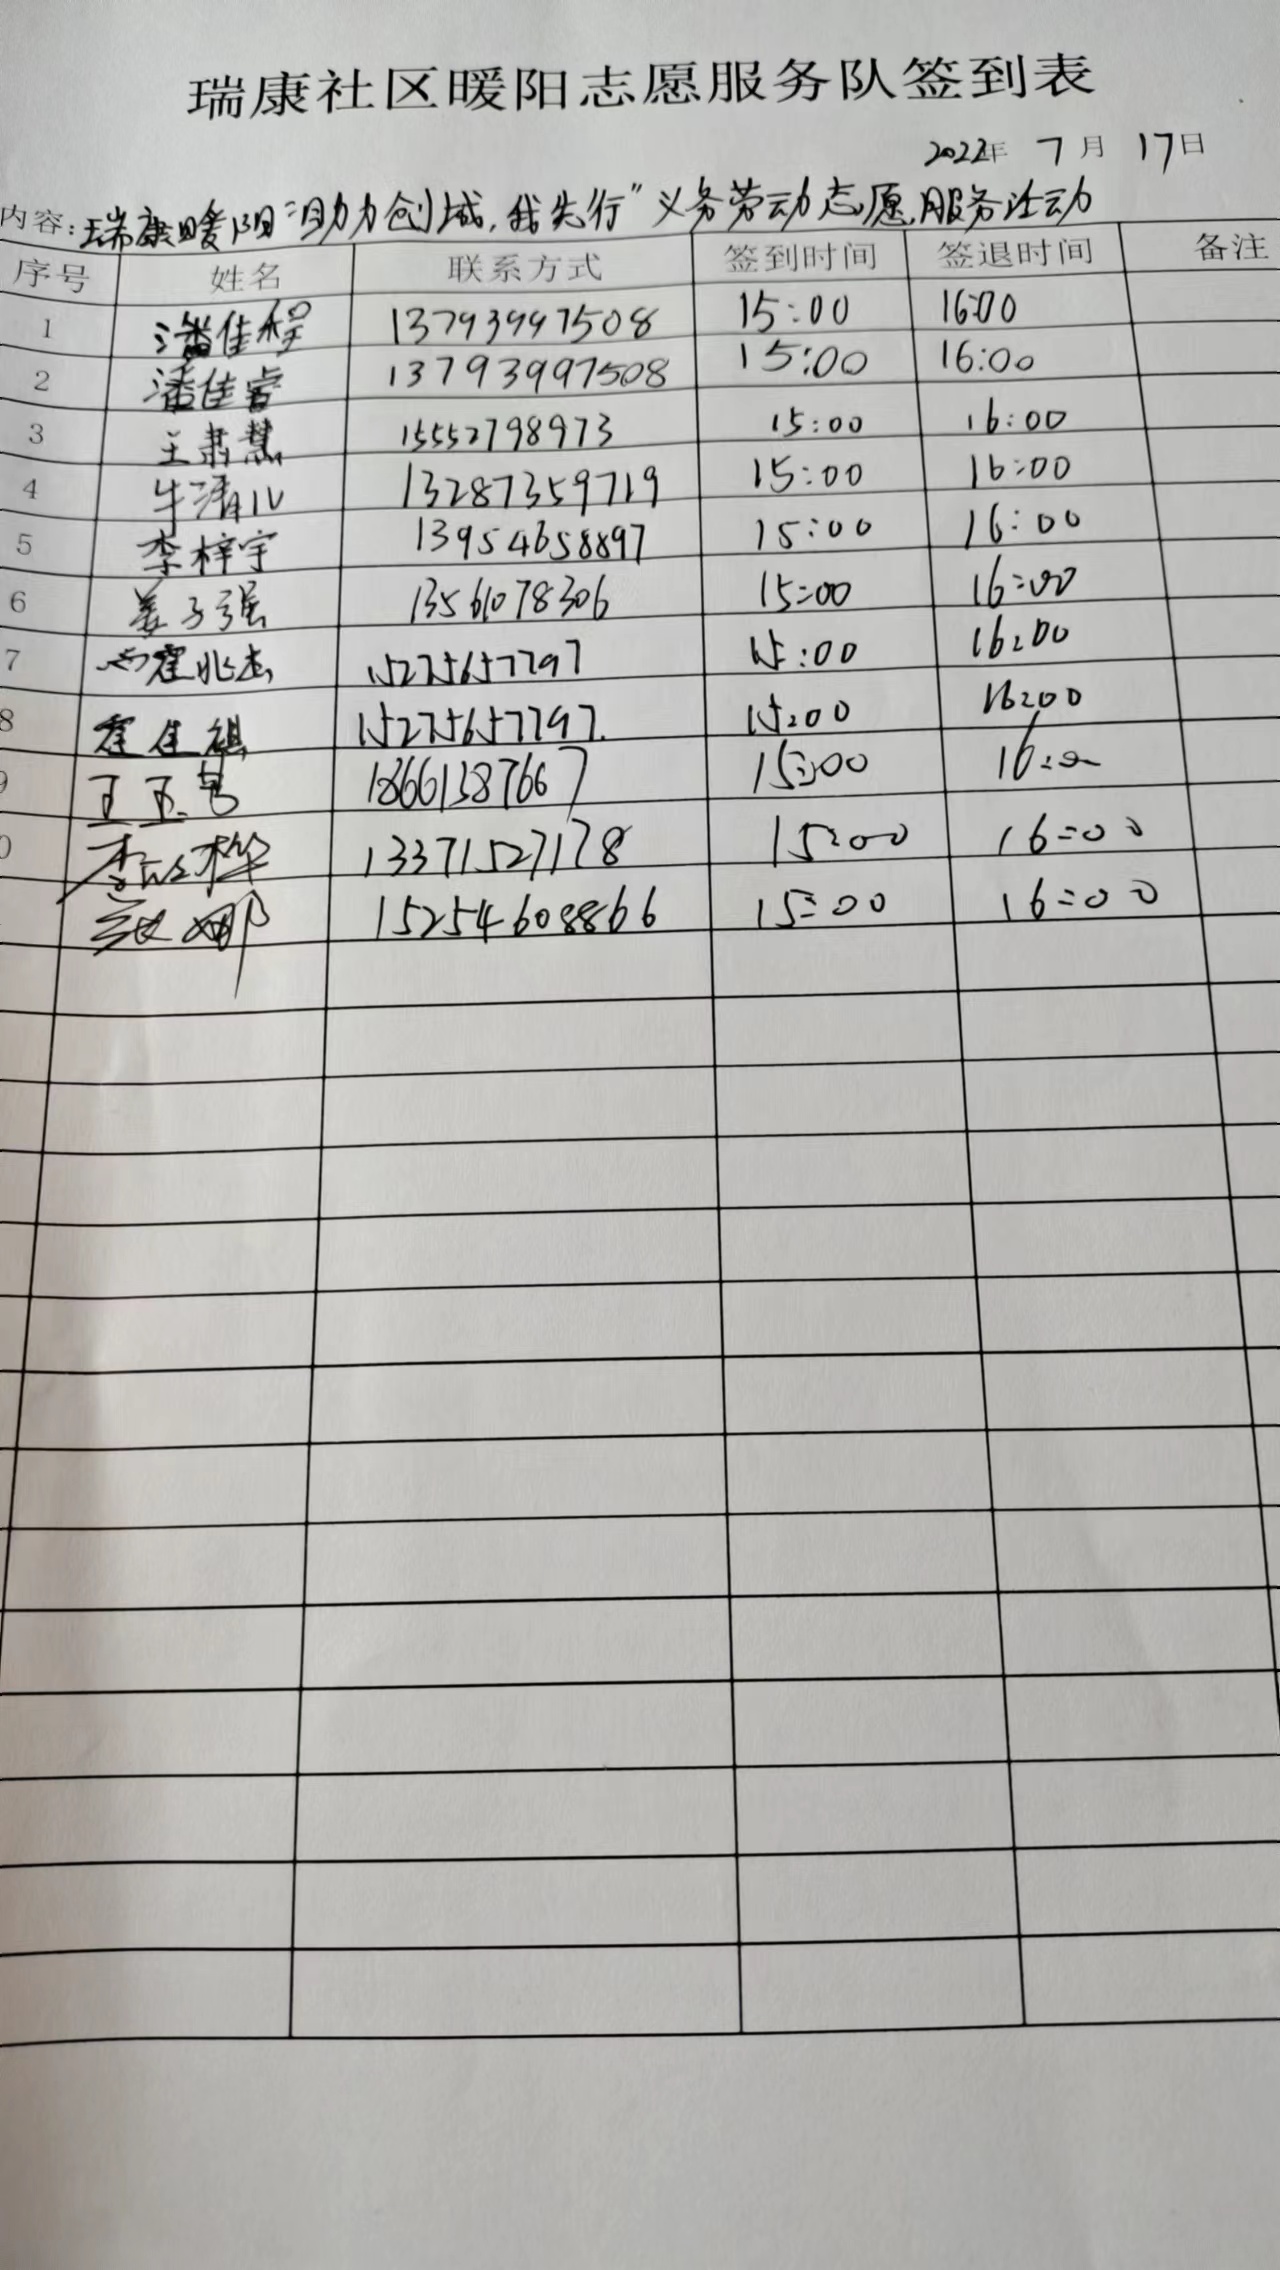 瑞康社区暖阳志愿服务队签到表
2022年 7月 17日
内容:瑞康暖阳"助力创城,我先行"义务劳动志愿服务活动
序号 姓名 联系方式 签到时间 签退时间 备注
1 潘佳程 13793997508 15:00 16:00
2 潘佳睿 13793997508 15:00 16:00
3 王肃慧 15552798973 15:00 16:00
4 牛清 13287359719 15:00 16:00
5 李梓宇 13954658897 15:00 16:00
6 姜子强 13561078306 15:00 16:00
7 霍兆杰 15275657797 15:00 16:00
8 霍佳祺 15275657797 15:00 16:00
王玉 18661387667 15:00 16:00
李 桦 13371527178 15:00 16:00
娜 15254608866 15:00 16:00